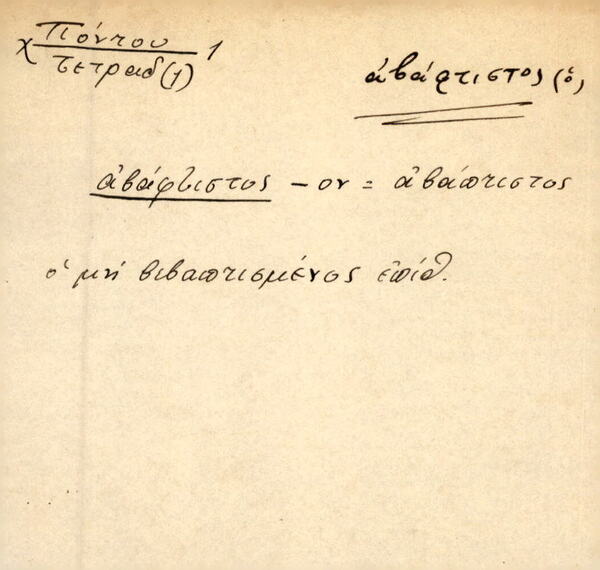 χ Πόντου 1
τετραδ(1)
ἀβάφτιστος (ὁ)
ἀβάφτιστος - ον = ἀβάπτιστος
ὁ μή βεβαπτισμένος ἐπίθ.